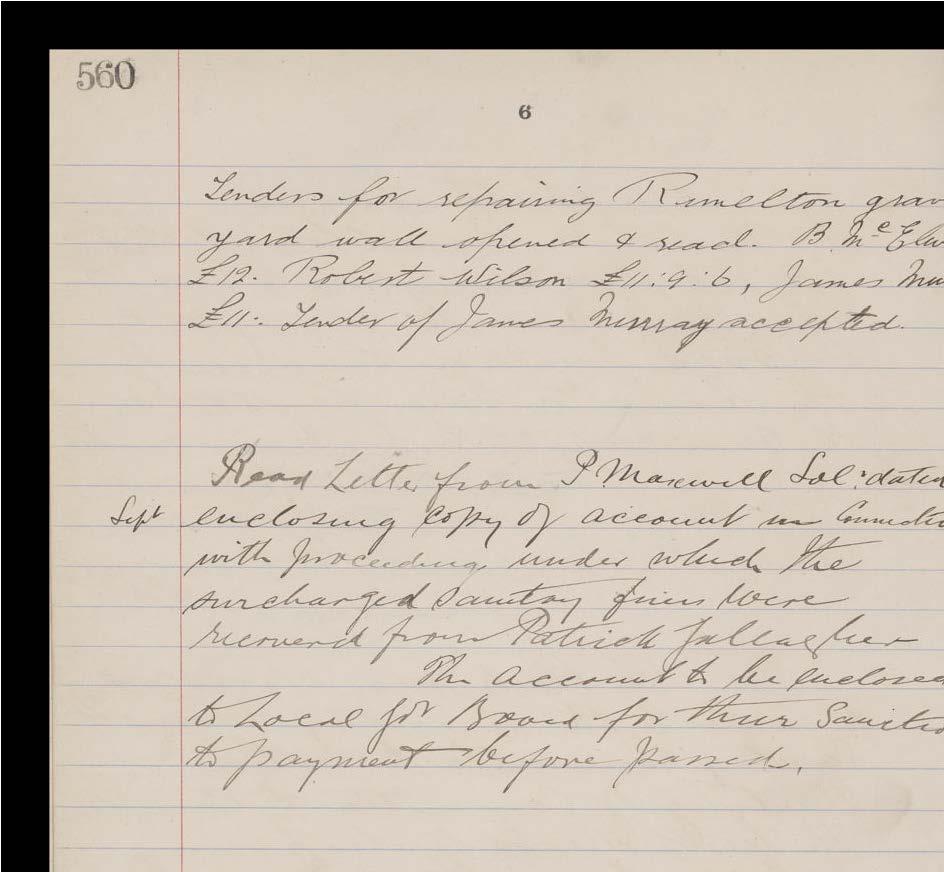 560
6
Tenders for repairing Rumelton grav
yard wall opened & read. B. McElw
£12. Robert Wilson £11:9:6, James Mu
£11:. Tender of James Murray accepted.
Read Letter from P Maxwell Sol: dated
Sept enclosing copy of account in Connectio
with proceedings under which the
surcharged Sanitary fines were
recovered from Patrick Gallagher
The Account to be enclosed
to Local Gov Board for their Sanctio
to payment before passed.